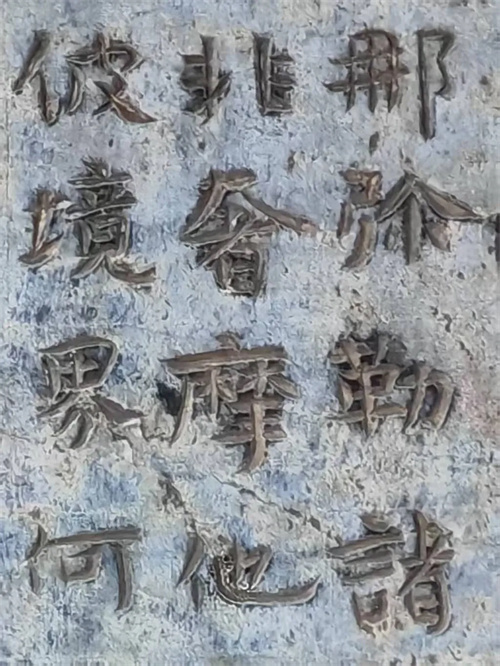 那弥勒諸
非奢摩他
彼境界何